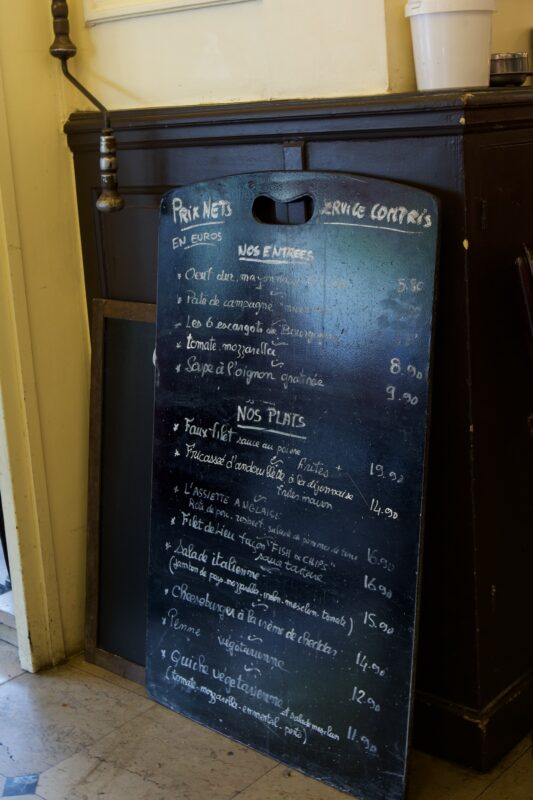 PRIX NETS SERVICE COMPRIS
EN EUROS
NOS ENTREES
* Oeuf dur, 5.80
* Pâté de campagne
* Les 6 escargots de Bourgogne
* tomate, mozzarella 8.90
* Soupe à l'oignon gratinée 9.90
NOS PLATS
* Faux-filet sauce au poivre
frites 19.90
* Fricassée d'andouillette à la dijonnaise
frites maison 14.90
* L'ASSIETTE ANGLAISE
Roti de porc, rosbeef, salade de pommes de terre 16.90
* Filet de Lieu façon "FISH en CHIPS"
sauce tartare 16.90
* Salade italienne
(jambon de pays, mozzarella, melon, mesclun, tomate) 15.90
* Cheeseburger à la crème de cheddar 14.90
* Penne végétarienne 12.90
* Quiche vegetarienne et salade mesclun
(tomate, mozzarella, emmental, pesto) 11.90